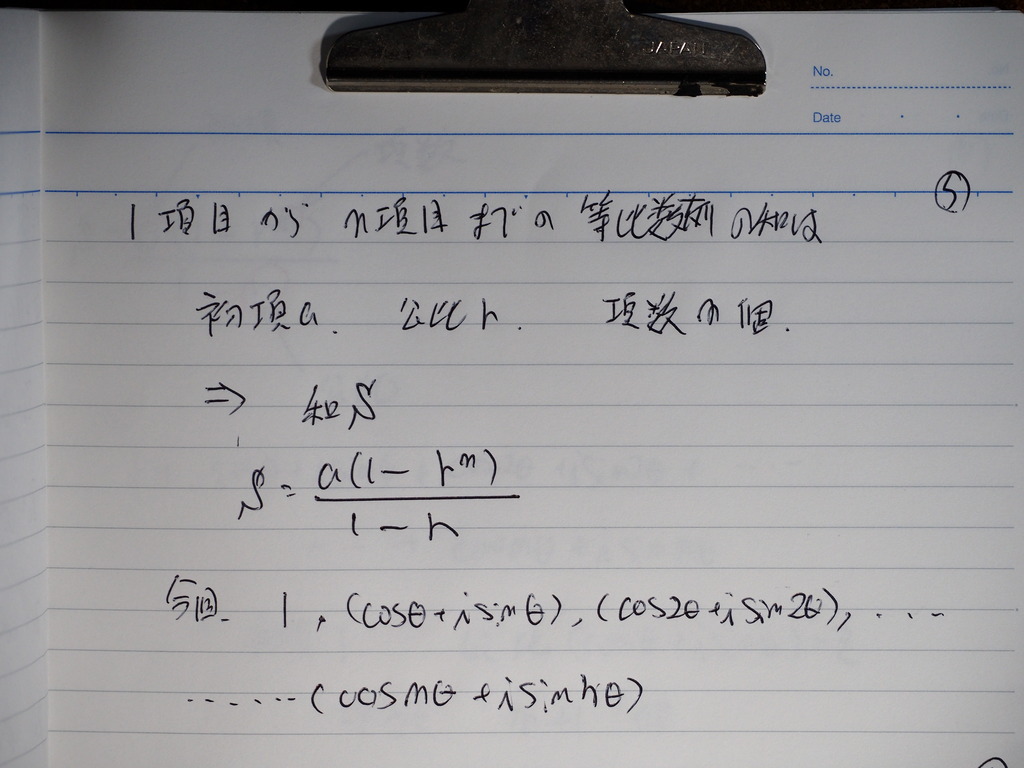 JAPAN
No.
Date
⑤
1項目から n項目までの等比数列の和は
初項a. 公比r. 項数n個.
⇒ 和S
S = a(1 - r^n) / 1 - r
今回. 1, (cosθ+isinθ), (cos2θ+isin2θ), ....
......(cosnθ+isinnθ)